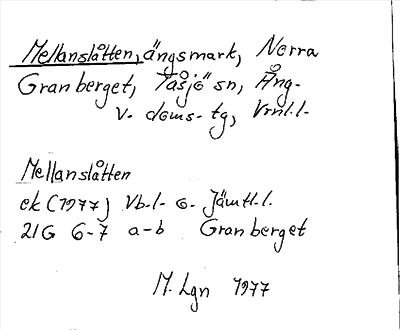 Mellanslåtten, ängsmark, Norra
Granberget, Tåsjö sn, Ång-
v. doms. tg, Vrnl.l.
Mellanslåtten
ek (1977) Vb.l. o. Jämtl.l.
21G 6-7 a-b Granberget
M. Lgn 1977